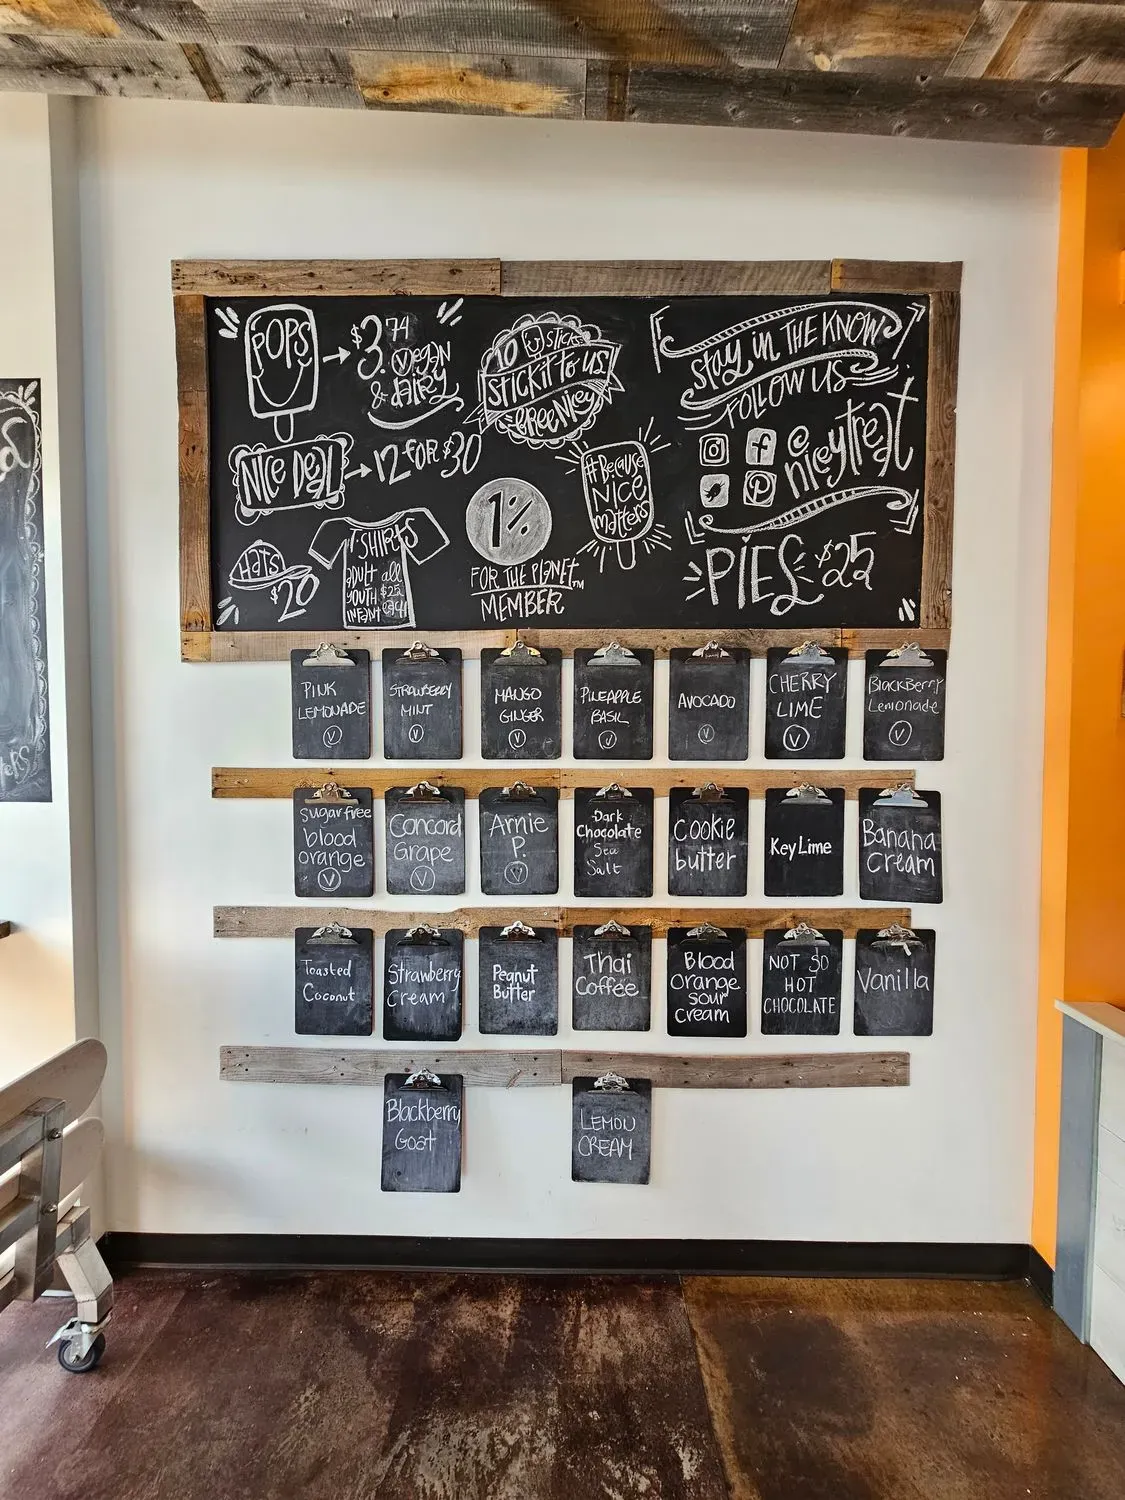 POPS
$3.74
Vegan
& dAiRy
10 STICKS
STICK IT to US
=FREE NICEY
STAY IN THE KNOW
FOLLOW US
@
niceytreat
NICE DEAL
12 FOR $30
#BecAuse
NICE
mAtters
1%
FOR THE PLANET™
MEMBER
HATS
$20
T-SHIRTS
ADULT all
YOUTH $25
INFANT
PIES $25
PINK
LEMONADE
V
STRAWBERRY
MINT
V
MANGO
GINGER
V
PINEAPPLE
BASIL
V
AVOCADO
V
CHERRY
LIME
V
BlackBerry
Lemonade
V
Sugar free
blood
orange
V
Concord
Grape
V
Arnie
P.
V
Dark
Chocolate
Sea
Salt
Cookie
butter
Key Lime
Banana
Cream
Toasted
Coconut
Strawberry
Cream
Peanut
Butter
Thai
Coffee
Blood
Orange
sour
cream
NOT SO
HOT
CHOCOLATE
Vanilla
Blackberry
Goat
LEMON
CREAM